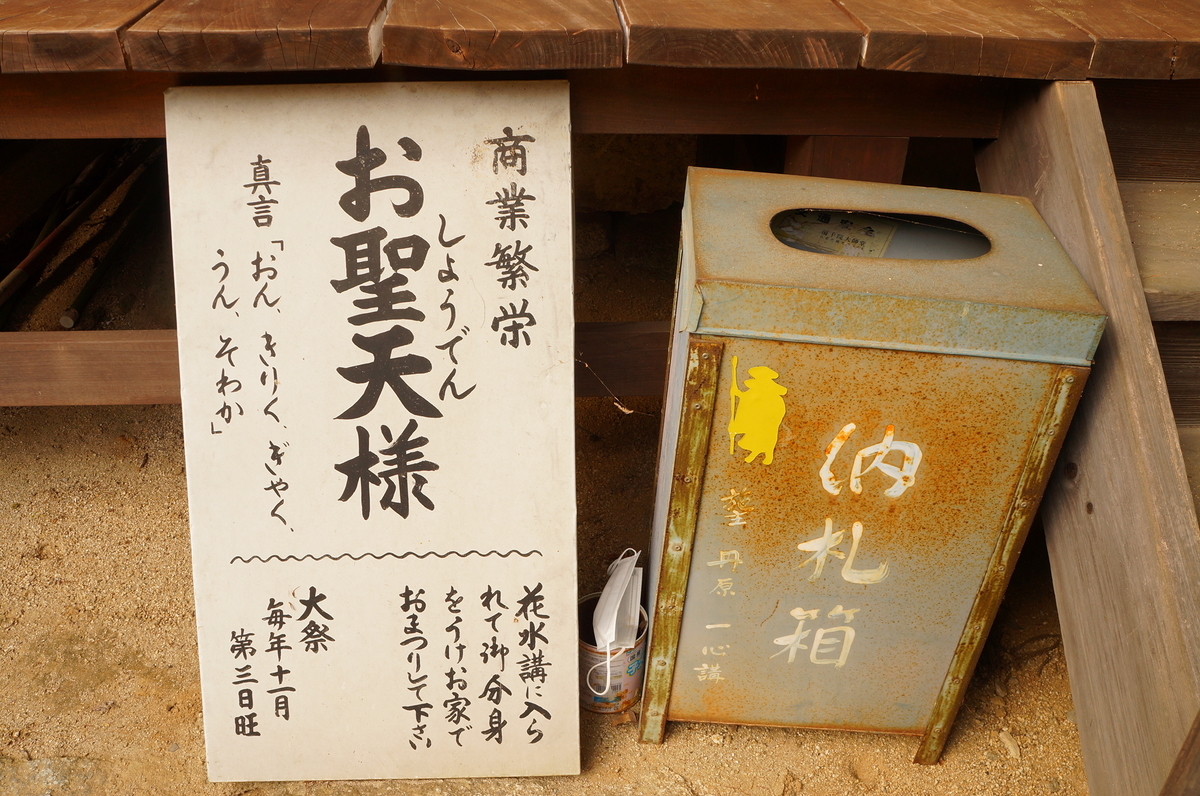 商業繁栄
しょうでん
お聖天様
真言「おん、きりく、ぎゃく、
うん、そわか」
花水講に入ら
れて御分身
をうけお家で
おまつりして下さい
大祭
毎年十一月
第三日旺
納札箱
丹原一心講